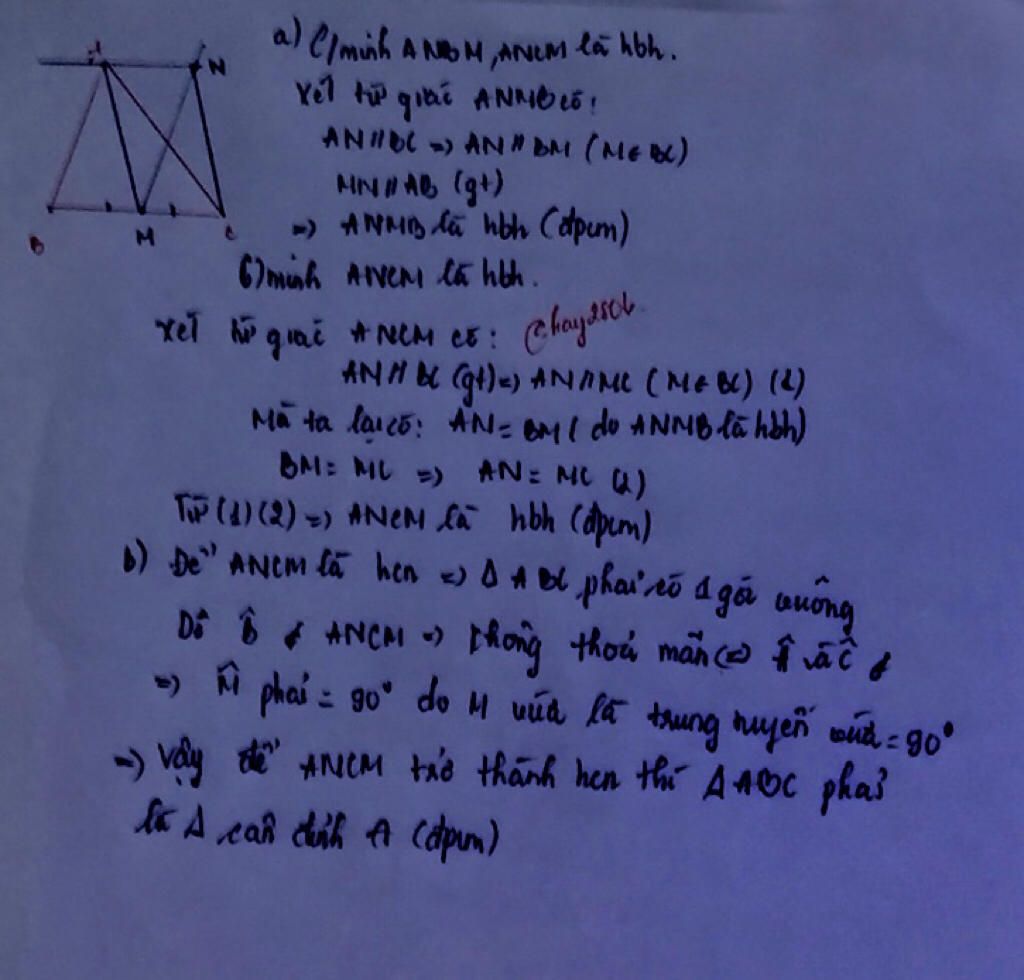 a) C/minh ANBM, ANCM là hbh.
A
N
B
M
C
Xét tứ giác ANMB có:
AN // BC => AN // BM (M ∈ BC)
MN // AB (gt)
=> ANMB là hbh (đpcm)
C/minh ANCM là hbh.
Xét tứ giác ANCM có:
@hay2506
AN // BC (gt) => AN // MC (M ∈ BC) (1)
Mà ta lại có: AN = BM (do ANMB là hbh)
BM = MC => AN = MC (2)
Từ (1) (2) => ANCM là hbh (đpcm)
b) Để ANCM là hcn => Δ ABC phải có 1 góc vuông
Do B̂ ∉ ANCM => không thoả mãn (=) Â và Ĉ
=> M̂ phải = 90° do M vừa là trung tuyến vừa = 90°
=> Vậy để ANCM trở thành hcn thì Δ ABC phải
là Δ cân đỉnh A (đpcm)